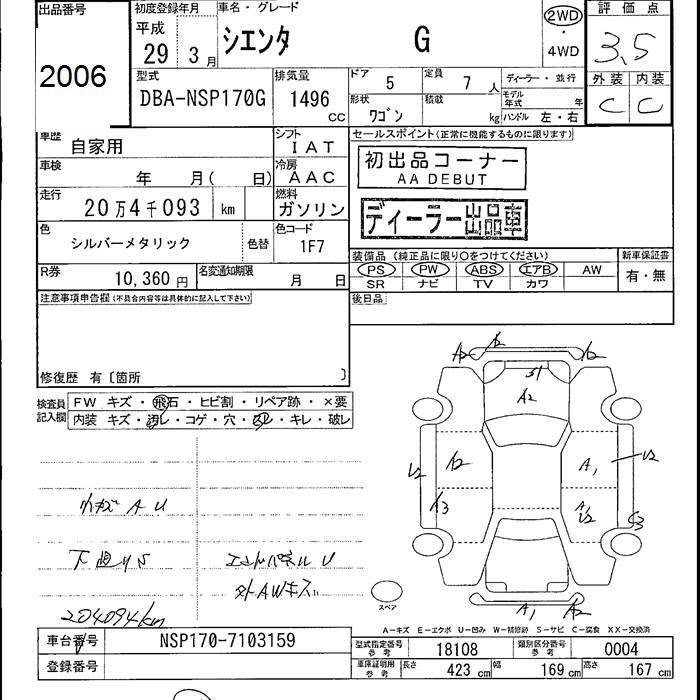 出品番号
2006
初度登録年月
平成
29年 3月
車名・グレード
シエンタ G
2WD
・
4WD
評価点
3.5
外装 内装
C C
型式
DBA-NSP170G
排気量
1496
CC
ドア 5
定員 7 人
ディーラー・並行
形状 ワゴン
積載 kg
モデル年式 年
ハンドル 左・右
車歴
自家用
シフト
IAT
セールスポイント(正常に機能するものに限ります)
初出品コーナー
AA DEBUT
ディーラー出品車
車検 年 月( 日)
冷房
AAC
走行
20万4千093 km
燃料
ガソリン
色
シルバーメタリック
色替
色コード
1F7
装備品 (純正品に限り○をつけてください)
PS PW ABS エアB AW
SR ナビ TV カワ
新車保証書
有・無
R券
10,360円
名変通知期限
月 日
後日品
注意事項申告欄(不具合内容等は具体的に記入して下さい)
修復歴 有〔箇所 〕
検査員
記入欄
FW キズ・飛石・ヒビ割・リペア跡・×要
内装 キズ・汚レ・コゲ・穴・スレ・キレ・破レ
小キズ A U
下廻りS
エンドパネルU
外AWキズ
204094km
A2 A2 A2
S1
A2
U2 A2 A1 U2
A3 A U2 C3
A1 A2
スペア
A-キズ E-エクボ U-凹み W-補修跡 S-サビ C-腐食 XX-交換済
車台番号
NSP170-7103159
登録番号
型式指定番号 参考
18108
類別区分番号 参考
0004
車庫証明用 参考
長さ 423 cm
幅 169 cm
高さ 167 cm